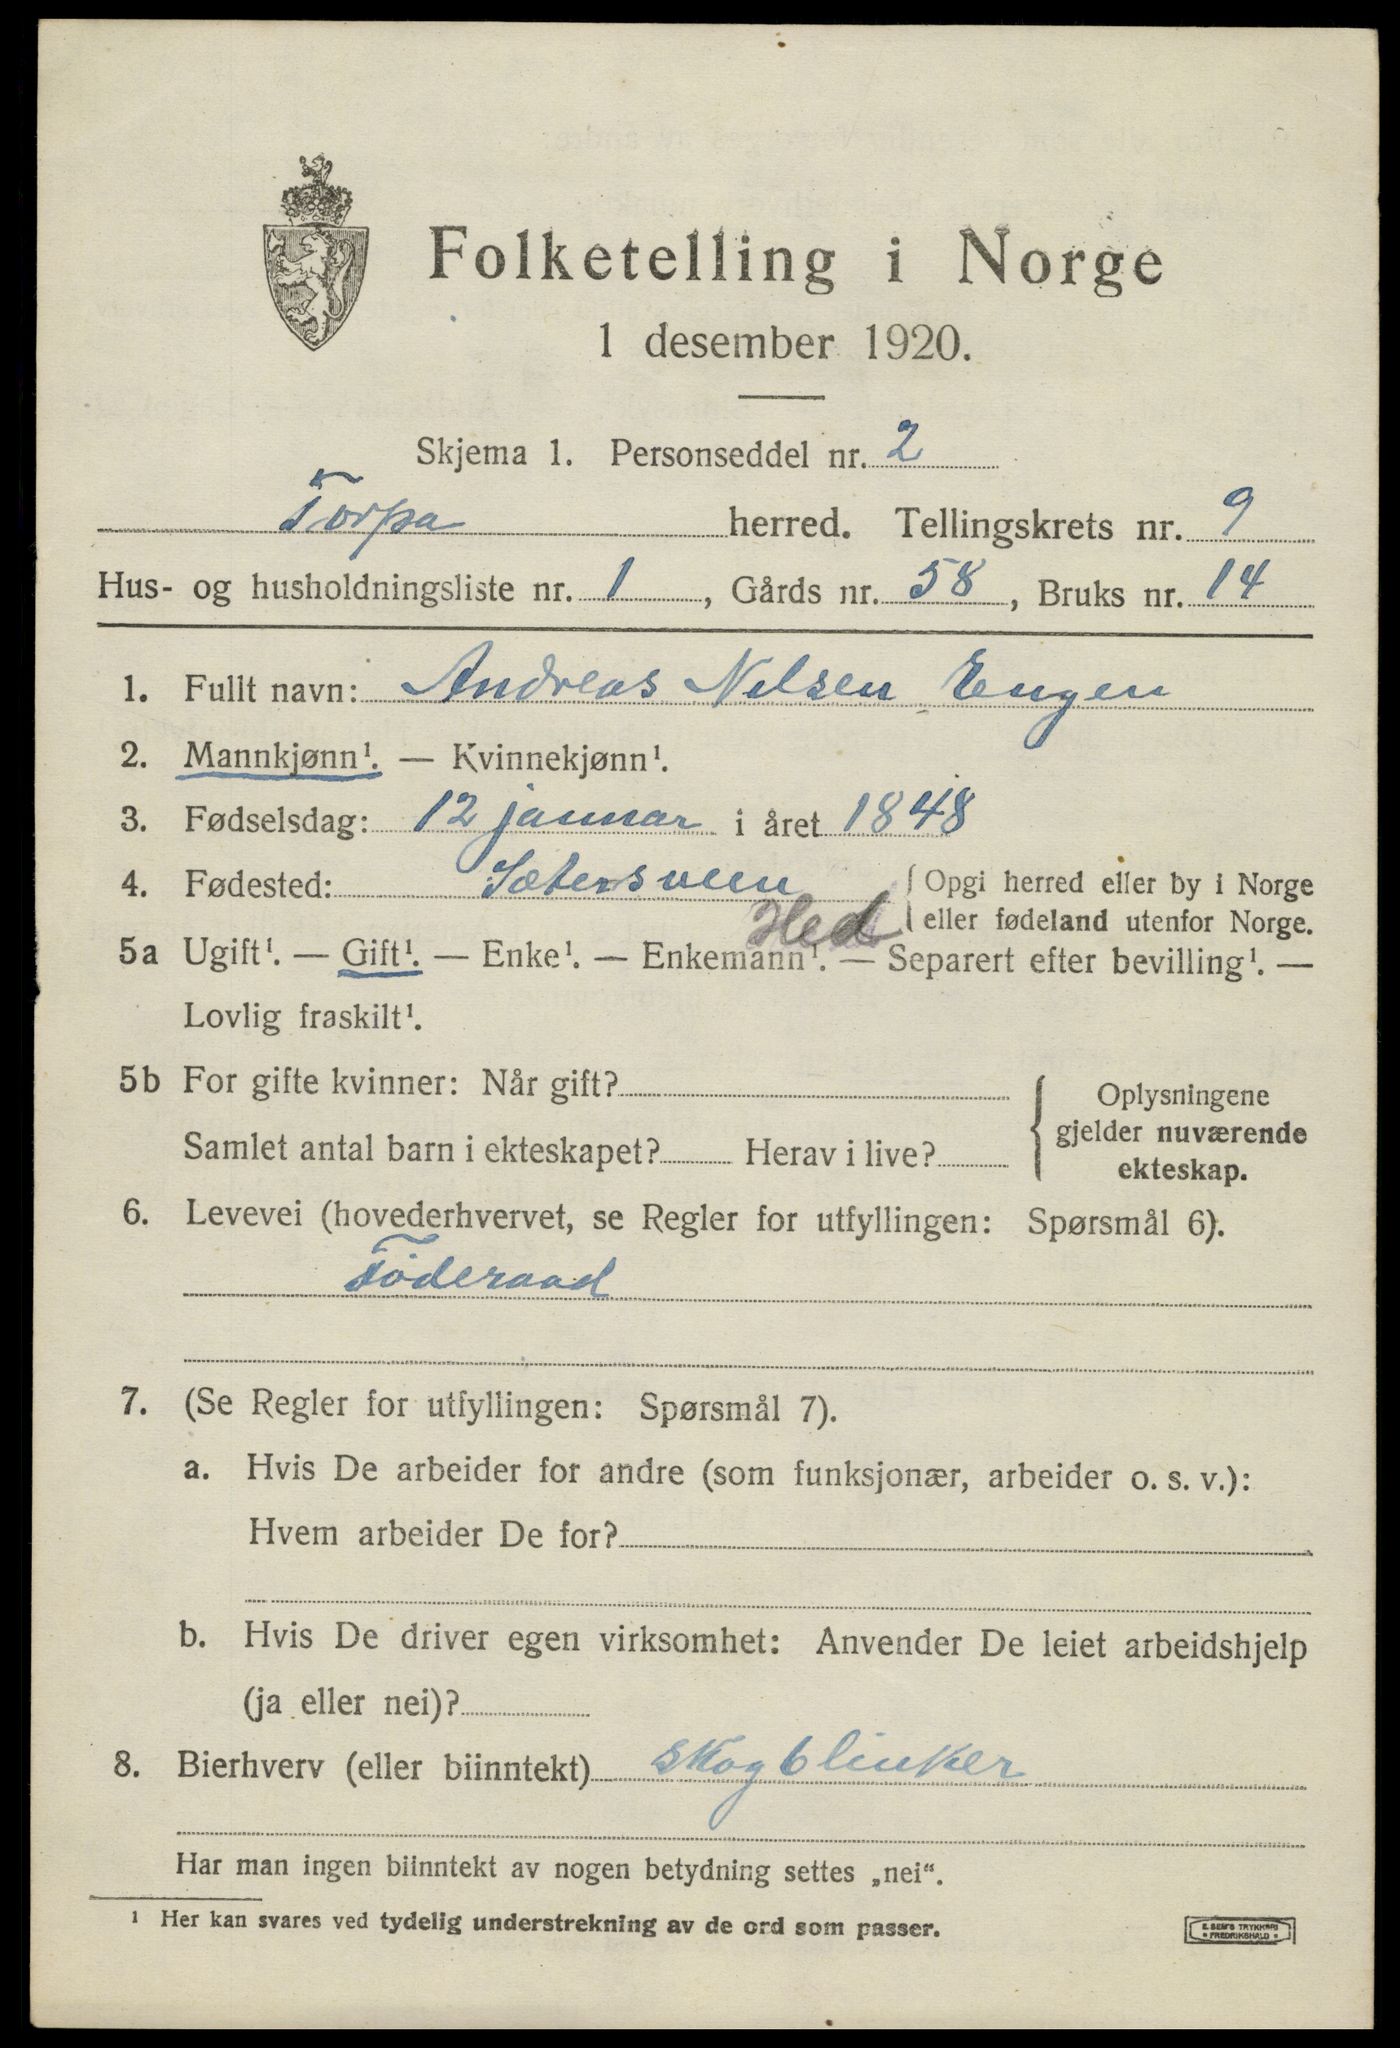 Folketelling i Norge
1 desember 1920.
Skjema 1. Personseddel nr. 2
Torpa herred. Tellingskrets nr. 9
Hus- og husholdningsliste nr. 1, Gårds nr. 58, Bruks nr. 14
1. Fullt navn: Andreas Nilsen Engen
2. Mannkjønn¹. — Kvinnekjønn¹.
3. Fødselsdag: 12 januar i året 1848
4. Fødested: Sætersveen {Opgi herred eller by i Norge
Hed eller fødeland utenfor Norge.
5a Ugift¹. — Gift¹. — Enke¹. — Enkemann¹. — Separert efter bevilling¹. —
Lovlig fraskilt¹.
5b For gifte kvinner: Når gift? { Oplysningene
gjelder nuværende
Samlet antal barn i ekteskapet? Herav i live? ekteskap.
6. Levevei (hovederhvervet, se Regler for utfyllingen: Spørsmål 6).
Föderaad
7. (Se Regler for utfyllingen: Spørsmål 7).
a. Hvis De arbeider for andre (som funksjonær, arbeider o. s. v.):
Hvem arbeider De for?
b. Hvis De driver egen virksomhet: Anvender De leiet arbeidshjelp
(ja eller nei)?
8. Bierhverv (eller biinntekt) skogblinker
Har man ingen biinntekt av nogen betydning settes „nei“.
¹ Her kan svares ved tydelig understrekning av de ord som passer.
E. SEM'S TRYKKERI
• FREDRIKSHALD •